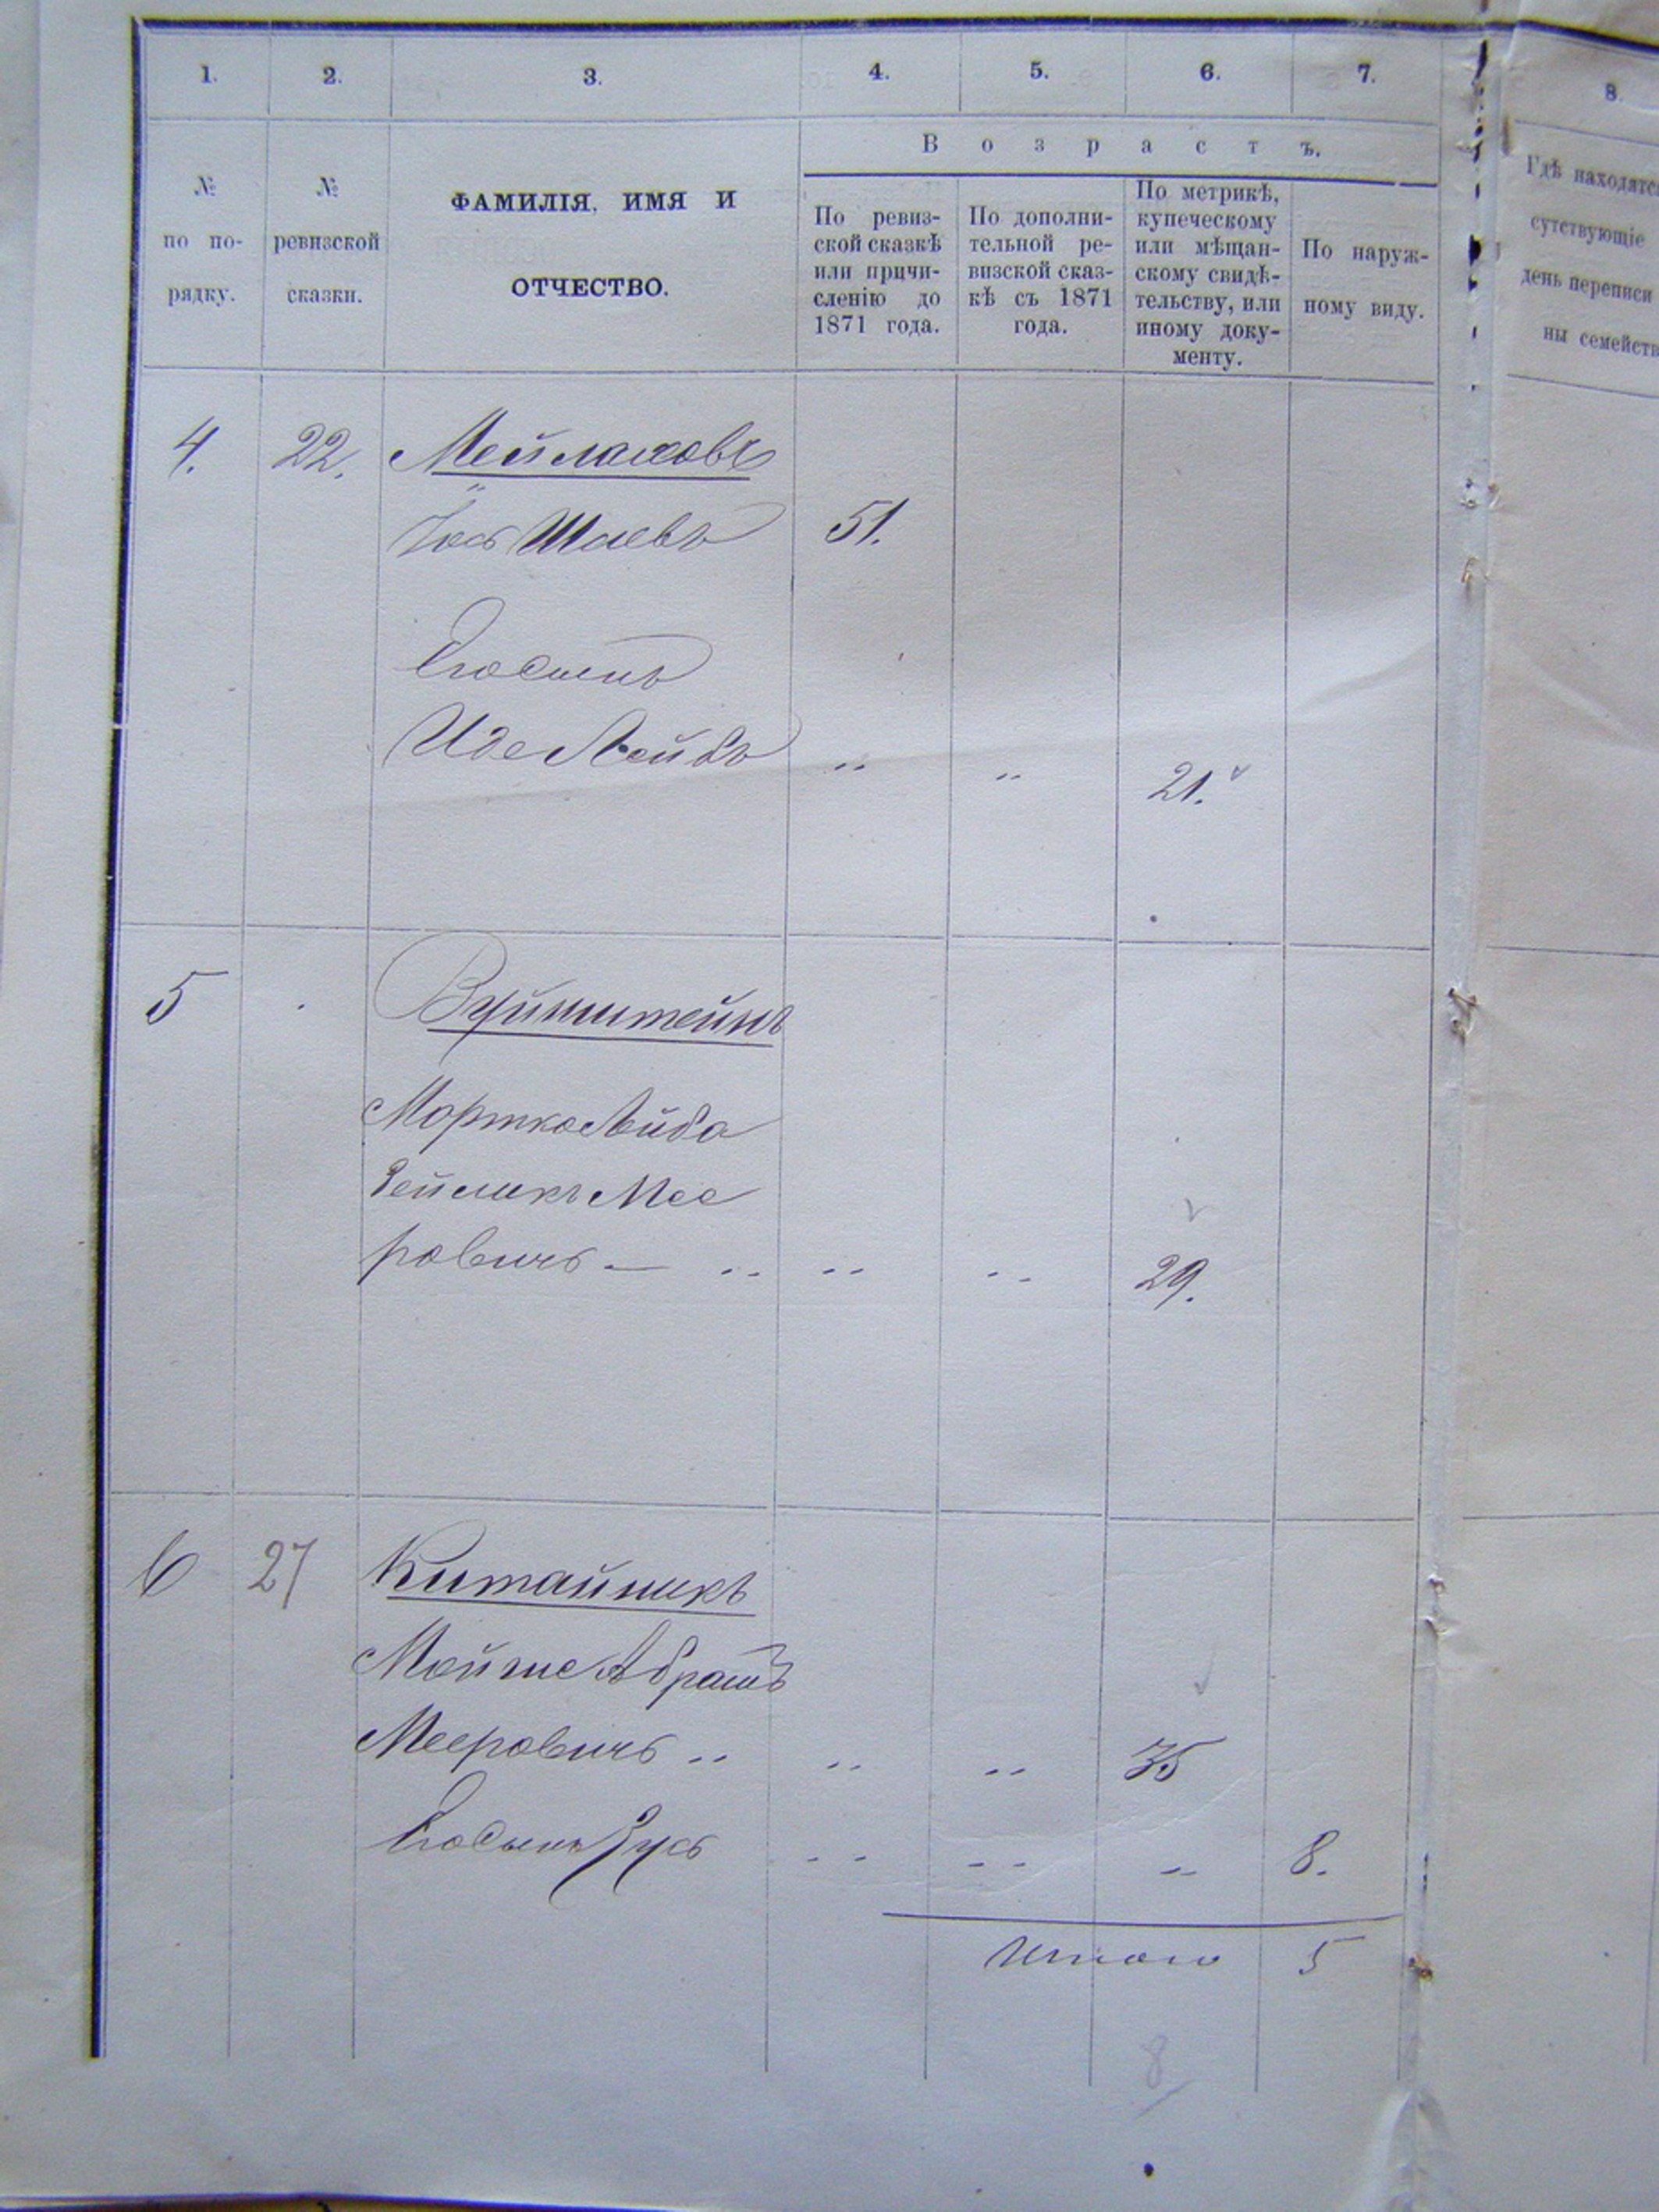 1. 2. 3. 4. 5. 6. 7. 8.
Возрастъ.
№ по по-рядку.
№ ревизской сказки.
ФАМИЛІЯ, ИМЯ И
ОТЧЕСТВО.
По ревиз-
ской сказкѣ
или причи-
сленію до
1871 года.
По дополни-
тельной ре-
визской сказ-
кѣ съ 1871
года.
По метрикѣ,
купеческому
или мѣщан-
скому свидѣ-
тельству, или
иному доку-
менту.
По наруж-
ному виду.
Гдѣ находятс
сутствующіе
день переписи
ны семейств
4. 22. Мейлаховъ
Іось Шаевъ 51.
Его сынъ
Иде Лейбъ " " 21.
5 Вуйнштейнъ
Мортко Лейба
Зейликъ Мее
ровичъ — " " " 29.
6 27 Китайникъ
Мойше Абрамъ
Мееровичъ " " " 35
Его сынъ Зусь " " " 8.
Итого 5
8